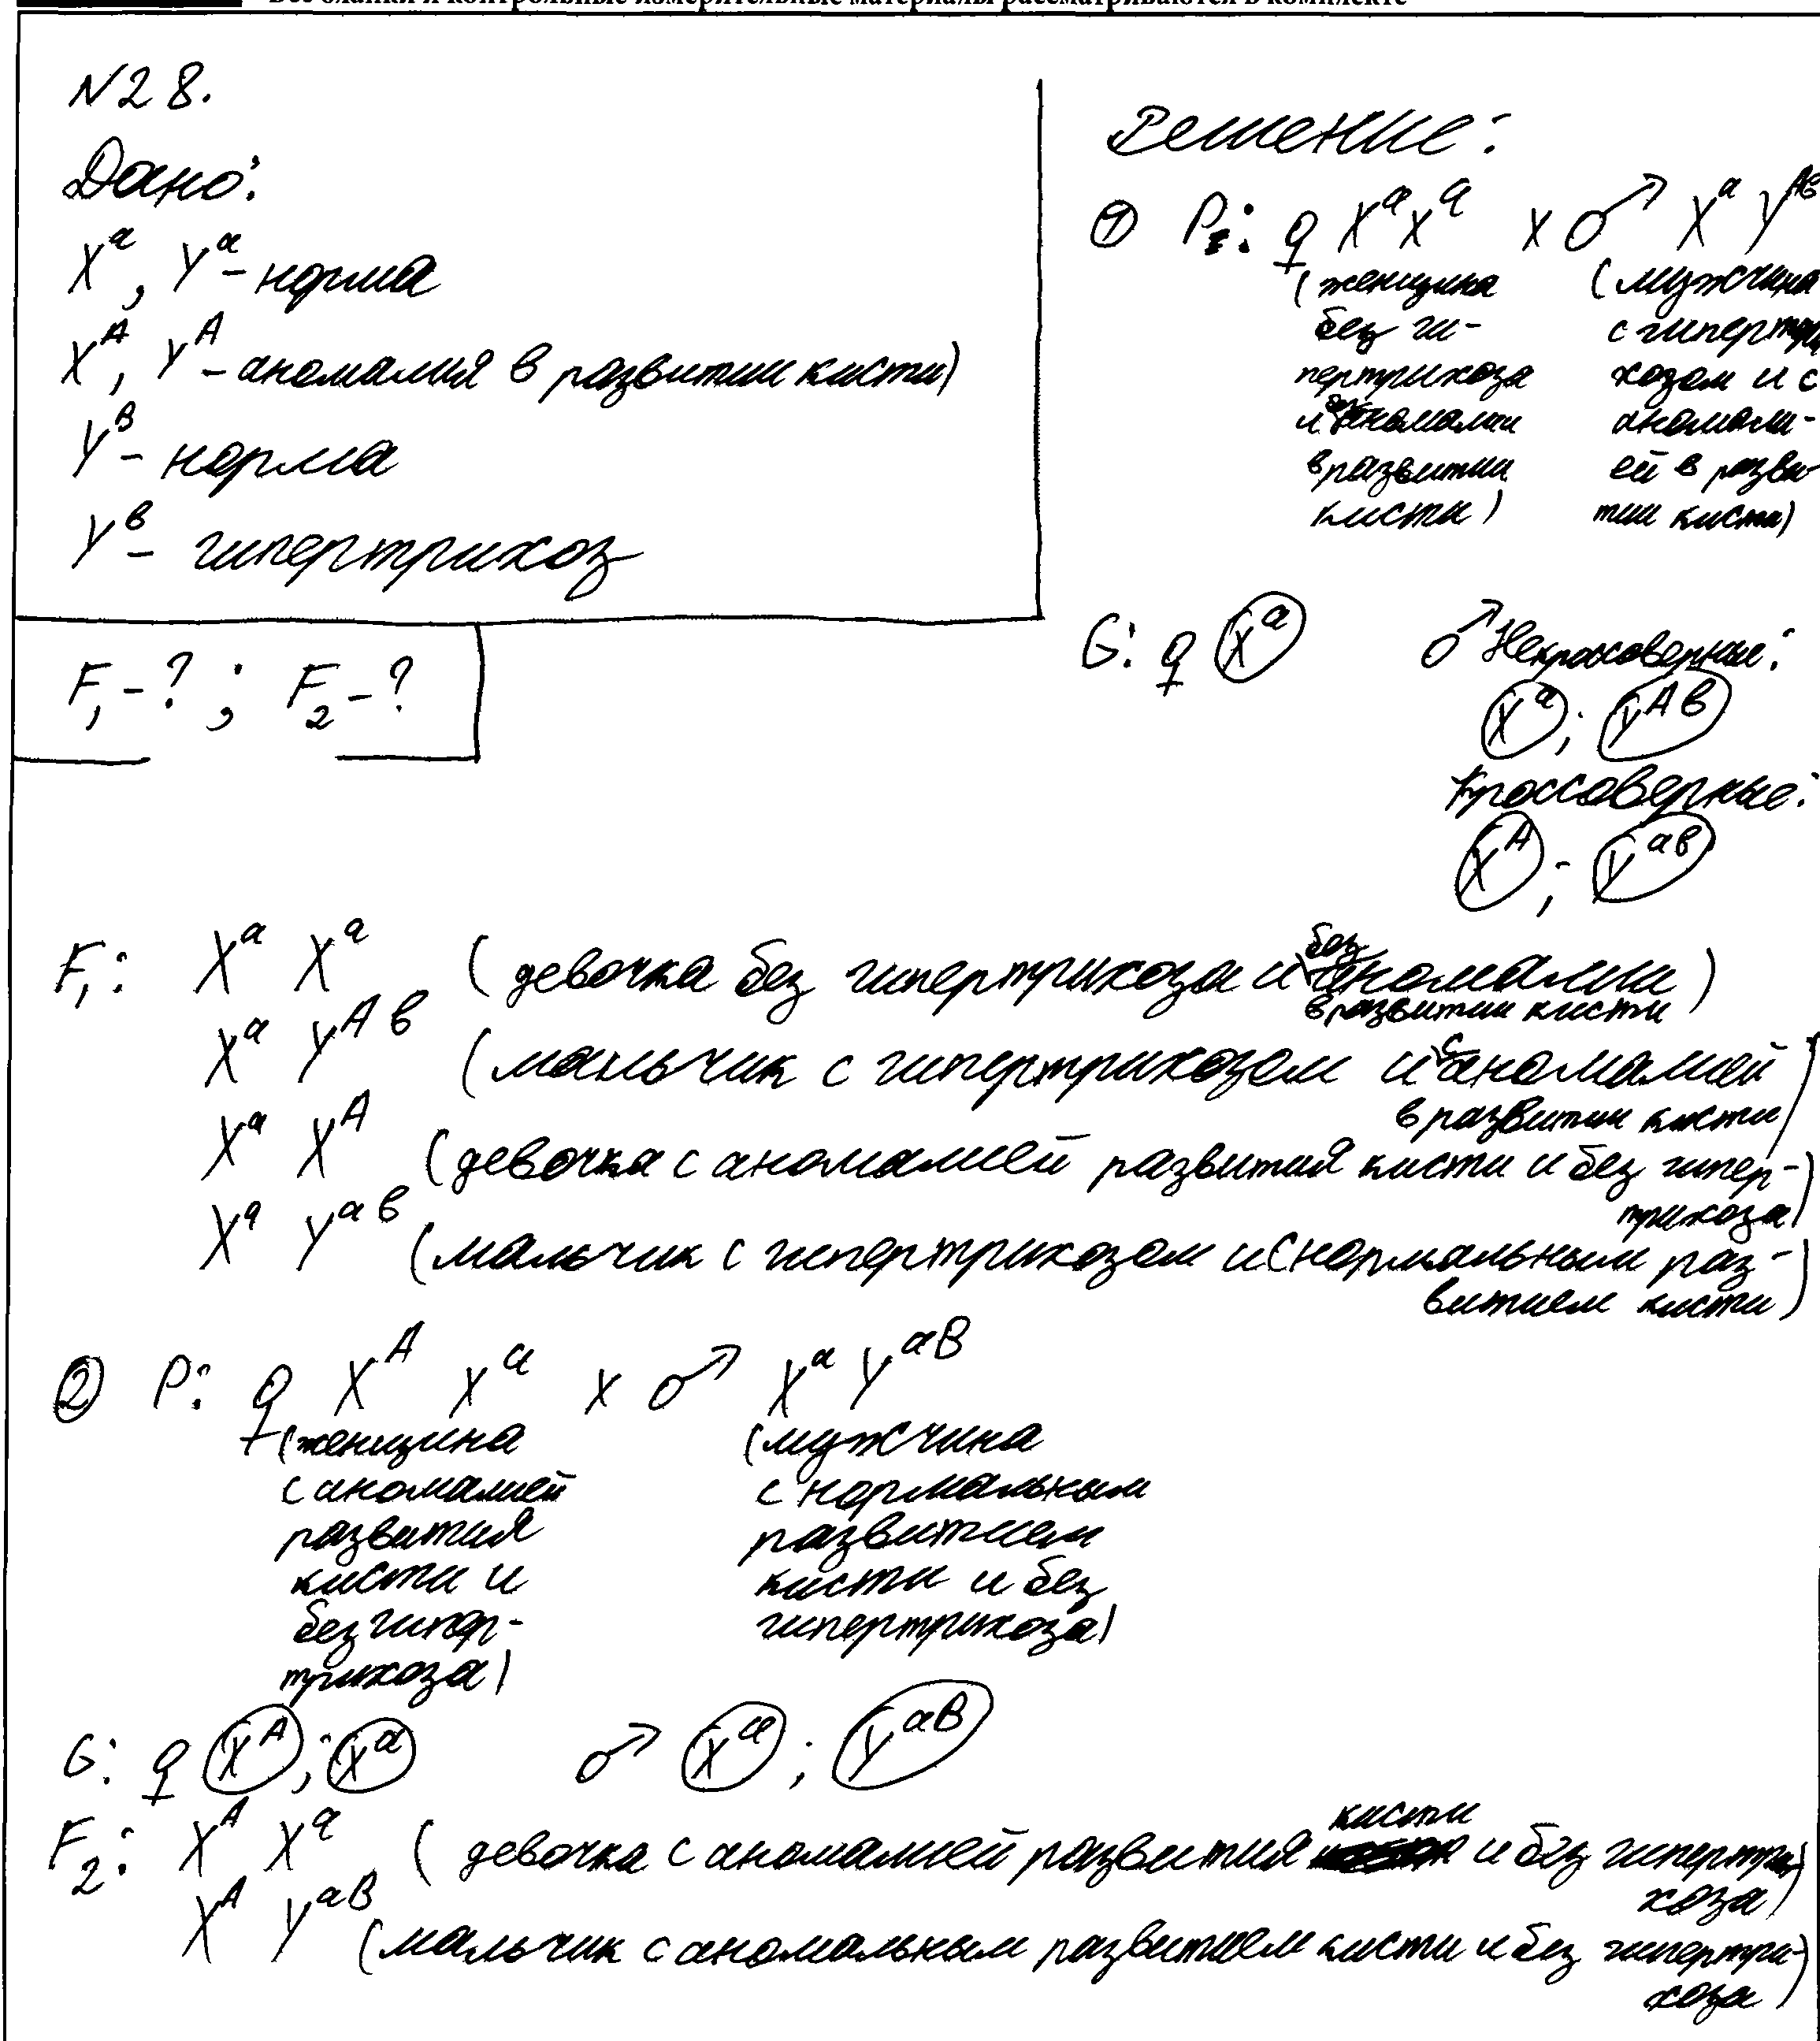 Все бланки и контрольные измерительные материалы рассматриваются в комплекте
N28.
Дано:
Xᵃ, Yᵃ - норма
Xᴬ, Yᴬ - аномалия в развитии кисти)
Yᴮ - норма
Yᵇ - гипертрихоз
F₁ - ? ; F₂ - ?
Решение:
① P: ♀ Xᵃ Xᵃ x ♂ Xᵃ Yᴬᵇ
(женщина
без ги-
пертрихоза
и без аномалии
в развитии
кисти)
(мужчина
с гипертри
хозом и с
аномали-
ей в разви-
тии кисти)
G: ♀ Xᵃ ♂ Некроссоверные:
Xᵃ; Yᴬᵇ
Кроссоверные:
Xᴬ; Yᵃᵇ
F₁: Xᵃ Xᵃ (девочка без гипертрихоза и без аномалии
в развитии кисти)
Xᵃ Yᴬᵇ (мальчик с гипертрихозом и с аномалией
в развитии кисти)
Xᵃ Xᴬ (девочка с аномалией развития кисти и без гипер-
трихоза)
Xᵃ Yᵃᵇ (мальчик с гипертрихозом и с нормальным раз-
витием кисти)
② P: ♀ Xᴬ Xᵃ x ♂ Xᵃ Yᵃᴮ
(женщина
с аномалией
развития
кисти и
без гипер-
трихоза)
(мужчина
с нормальным
развитием
кисти и без
гипертрихоза)
G: ♀ Xᴬ; Xᵃ ♂ Xᵃ; Yᵃᴮ
F₂: Xᴬ Xᵃ (девочка с аномалией развития кисти и без гипертри
хоза)
Xᴬ Yᵃᴮ (мальчик с аномальным развитием кисти и без гипертри-
хоза)